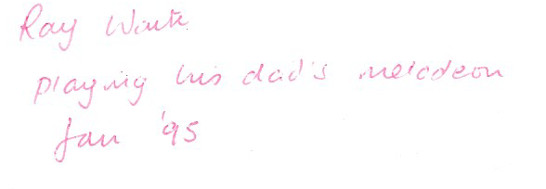 Ray
playing his dad's melodeon
Jan '95